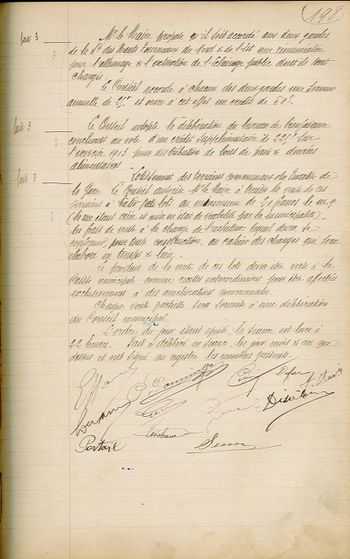 198
fait 3
Mr le Maire propose qu'il soit accordé aux deux gardes
de la Sté des Hauts Fourneaux du Nord & de l'Est une rémunération
pour l'allumage & l'extinction de l'éclairage public dont ils sont
chargés.
Le Conseil accorde à chacun des deux gardes une somme
annuelle de 25f et ouvre à cet effet un crédit de 50f.
fait 3
Le Conseil adopte la délibération du bureau de bienfaisance
concluant au vote d'un crédit supplémentaire de sur
l'exercice 1913 pour distribution de bons de pain & denrées
alimentaires.
fait 3
Lotissement des terrains communaux du Quartier de
la Gare. Le Conseil autorise Mr le Maire à traiter la vente de ces
terrains à bâtir par lots au minimum de 3 francs le m.q
(la rue étant créée et mise en état de viabilité par la municipalité),
les frais de vente à la charge de l'acheteur, lequel devra se
conformer, pour toute construction, au cahier des charges que sera
élaboré en temps & lieu.
Le produit de la vente de ces lots devra être versé à la
Caisse municipale comme recettes extraordinaires pour être affectées
exclusivement à des améliorations communales.
Chaque vente partielle sera soumise à une délibération
du Conseil municipal.
L'ordre du jour étant épuisé, la séance est levée à
22 heures. Fait & délibéré en séance, les jour, mois & an que
dessus et ont signé au registre les membres présents.